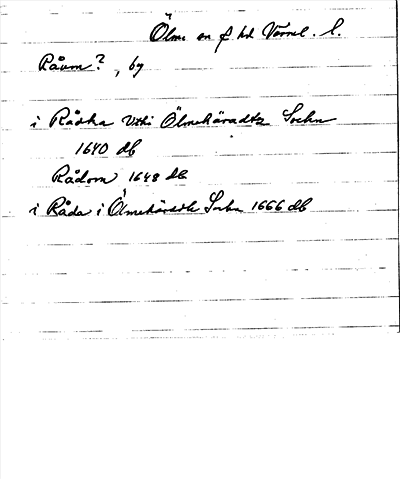 Ölme sn f. hd Värml. l.
Råum?, by
i Rådha Vthi Ölmehäradtz Sochn
1640 db
Rådom 1648 db
i Råda i Ölmehäradtz Sochn 1666 db